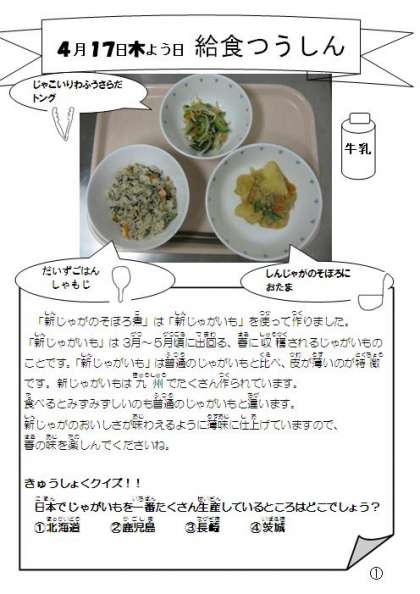 4月17日木よう日 給食つうしん
じゃこいりわふうさらだ
トング
牛乳
だいずごはん
しゃもじ
しんじゃがのそぼろに
おたま
「新じゃがのそぼろ煮」は「新じゃがいも」を使って作りました。
「新じゃがいも」は3月～5月頃に出回る、春に収穫されるじゃがいもの
ことです。「新じゃがいも」は普通のじゃがいもと比べ、皮が薄いのが特徴
です。新じゃがいもは九州でたくさん作られています。
食べるとみずみずしいのも普通のじゃがいもと違います。
新じゃがのおいしさが味わえるように薄味に仕上げていますので、
春の味を楽しんでくださいね。
きゅうしょくクイズ！！
日本でじゃがいもを一番たくさん生産しているところはどこでしょう？
①北海道 ②鹿児島 ③長崎 ④茨城
①